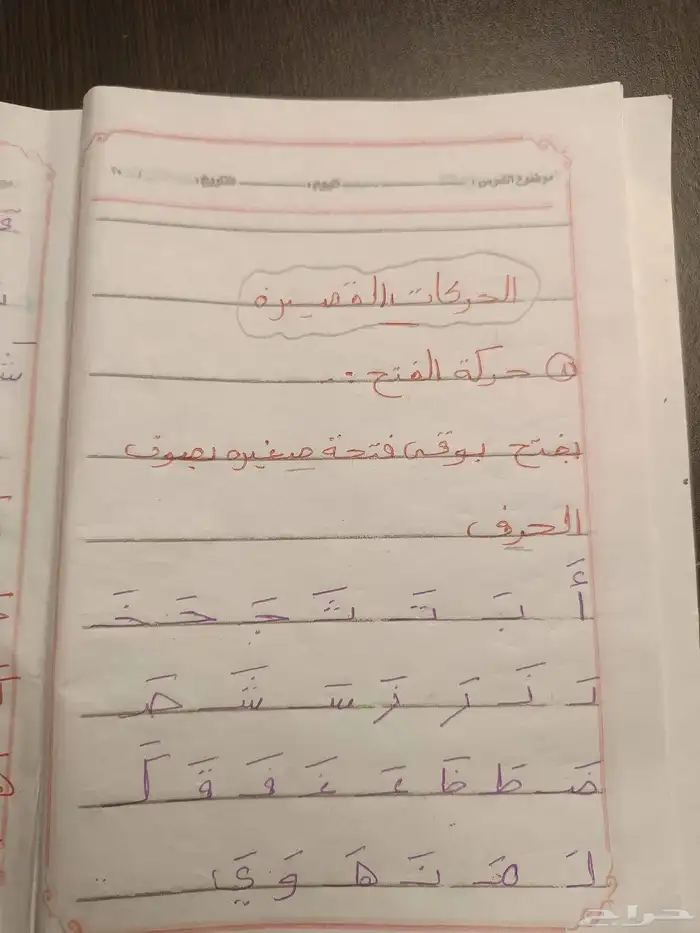 موضوع الدرس : اليوم : التاريخ : / ٢٠
الحركات القصيرة
① حركة الفتح :
بفتح بوقي فتحة صغيره بصوت
الحرف
أَ بَ تَ ثَ جَ حَ خَ
دَ ذَ رَ زَ سَ شَ صَ
ضَ طَ ظَ عَ غَ فَ قَ كَ
لَ مَ نَ هَ وَ يَ
حراج